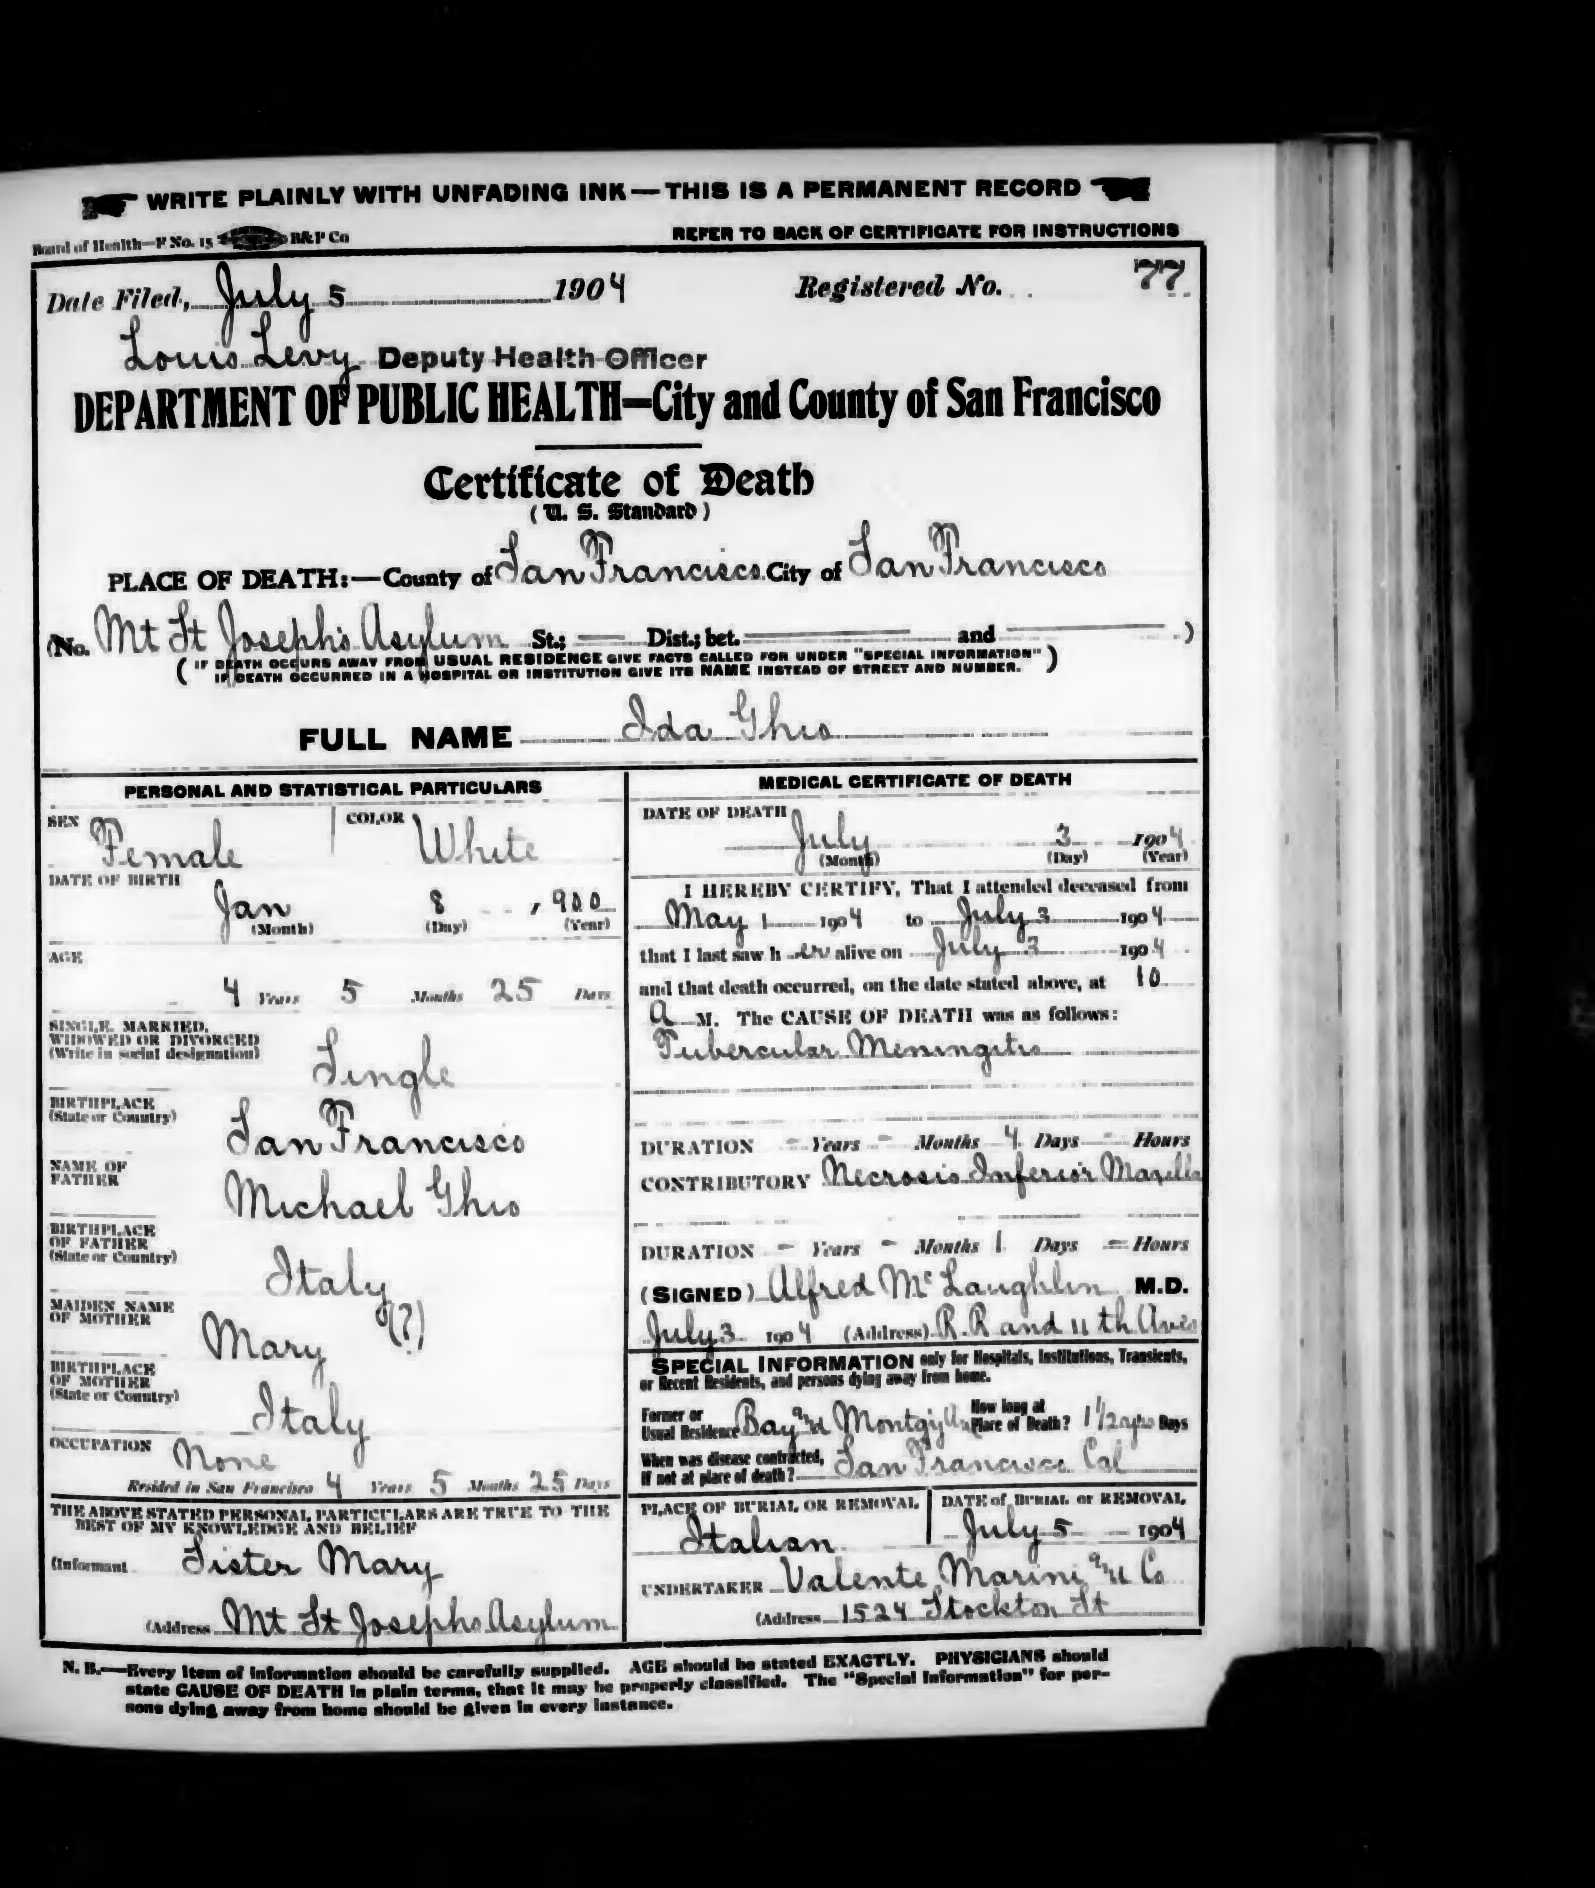 WRITE PLAINLY WITH UNFADING INK—THIS IS A PERMANENT RECORD
Board of Health—F No. 15 B&P Co REFER TO BACK OF CERTIFICATE FOR INSTRUCTIONS
Date Filed, July 5 1904 Registered No. 77
Louis Levy Deputy Health Officer
DEPARTMENT OF PUBLIC HEALTH—City and County of San Francisco
Certificate of Death
(U. S. Standard)
PLACE OF DEATH:—County of San Francisco City of San Francisco
(No. Mt St Joseph's Asylum St.; Dist.; bet. and )
(IF DEATH OCCURS AWAY FROM USUAL RESIDENCE GIVE FACTS CALLED FOR UNDER "SPECIAL INFORMATION"
IF DEATH OCCURRED IN A HOSPITAL OR INSTITUTION GIVE ITS NAME INSTEAD OF STREET AND NUMBER.)
FULL NAME Ida Ghio
PERSONAL AND STATISTICAL PARTICULARS
SEX Female COLOR White
DATE OF BIRTH
Jan 8, 1900
(Month) (Day) (Year)
AGE
4 Years 5 Months 25 Days
SINGLE, MARRIED,
WIDOWED OR DIVORCED
(Write in social designation) Single
BIRTHPLACE
(State or Country) San Francisco
NAME OF
FATHER Michael Ghio
BIRTHPLACE
OF FATHER
(State or Country) Italy
MAIDEN NAME
OF MOTHER Mary (?)
BIRTHPLACE
OF MOTHER
(State or Country) Italy
OCCUPATION None
Resided in San Francisco 4 Years 5 Months 25 Days
THE ABOVE STATED PERSONAL PARTICULARS ARE TRUE TO THE
BEST OF MY KNOWLEDGE AND BELIEF
(Informant Sister Mary
(Address Mt St Josephs Asylum
MEDICAL CERTIFICATE OF DEATH
DATE OF DEATH
July 3 1904
(Month) (Day) (Year)
I HEREBY CERTIFY, That I attended deceased from
May 1 1904 to July 3 1904
that I last saw her alive on July 3 1904
and that death occurred, on the date stated above, at 10
a M. The CAUSE OF DEATH was as follows:
Tubercular Meningitis
DURATION - Years - Months 4 Days - Hours
CONTRIBUTORY Necrosis Inferior Maxilla
DURATION - Years - Months 1 Days - Hours
(SIGNED) Alfred McLaughlin M.D.
July 3 1904 (Address) R.R and 11th Aves
SPECIAL INFORMATION only for Hospitals, Institutions, Transients,
or Recent Residents, and persons dying away from home.
Former or
Usual Residence Bay and Montgy How long at
Place of Death? 1 1/2 yrs Days
When was disease contracted,
If not at place of death? San Francisco Cal
PLACE OF BURIAL OR REMOVAL DATE of BURIAL or REMOVAL
Italian July 5 1904
UNDERTAKER Valente Marini and Co
(Address 1524 Stockton St
N. B.—Every item of information should be carefully supplied. AGE should be stated EXACTLY. PHYSICIANS should
state CAUSE OF DEATH in plain terms, that it may be properly classified. The "Special Information" for per-
sons dying away from home should be given in every instance.